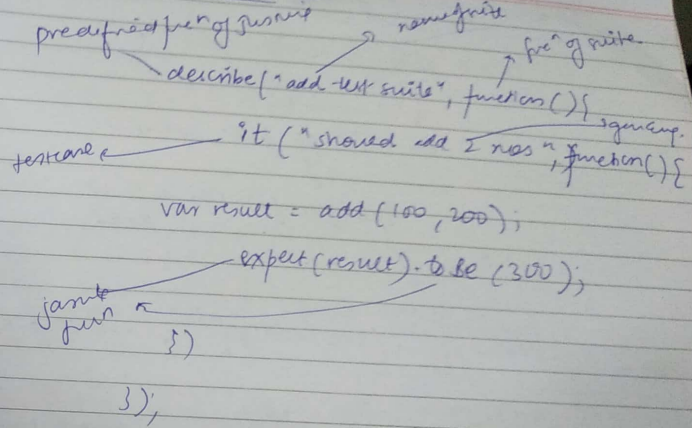 predefined funⁿ of jasmine
name of suite
funⁿ of suite
describe("add-test suite", function(){
it ("should add 2 nos", function(){
testcase
var result = add(100,200);
expect(result).tobe(300);
fun
})
});